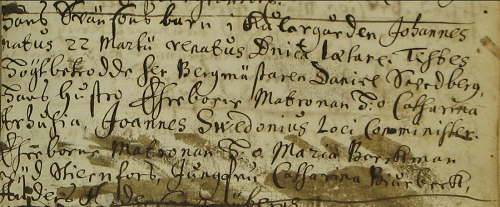 Hans Svänsons barn i Kålargården Johannes
natus 22 Martii renatus Dnica Lætare. Testes
Höghbetrodde her Bergmästaren Daniel Svedberg,
Hans hustro Ehreborne Matronan H:o Catharina
Joannes Swedonius Loci Comminister.
Ehreborne Matronan H:o Maria Bergkman
Stienfors, Jungfru Catharina Biurbeck,
Anders